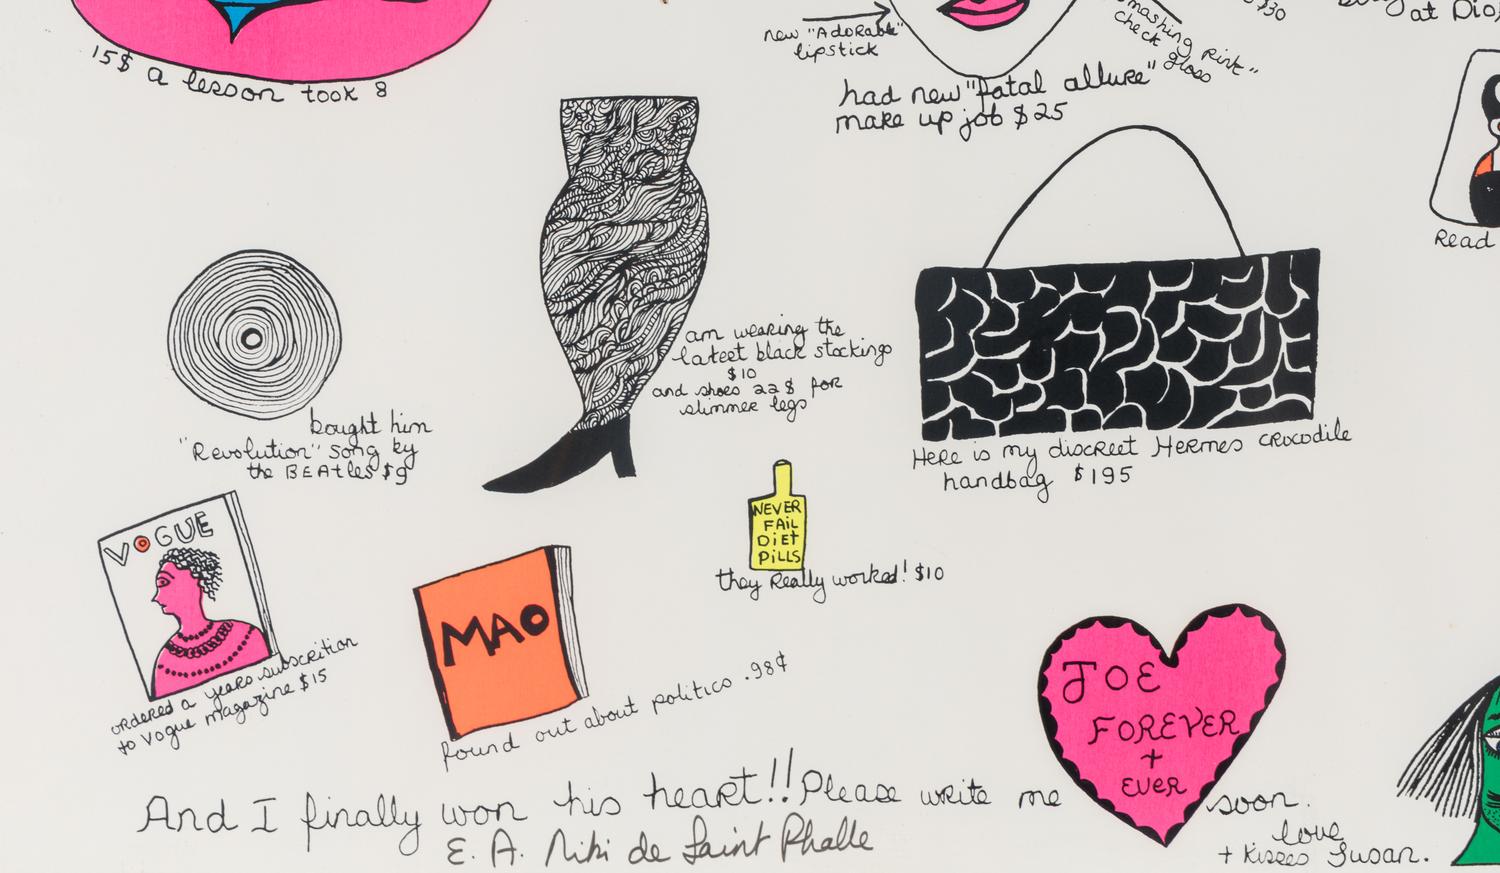 $30
at Dio
new "Adorable"
lipstick
smashing pink"
check gloss
15$ a lesson took 8
had new "fatal allure"
make up job $25
Read
am wearing the
lateet black stockings
$10
and shoes 22$ for
slimmer legs
bought him
"Revolution" song by
the BEAtles $9
Here is my discreet Hermes crocodile
handbag $195
VOGUE
NEVER
FAiL
DiEt
PiLLS
they really worked! $10
ordered a years subscrition
to Vogue magazine $15
MAO
found out about politics .98¢
JOE
FOREVER
+
EVER
And I finally won his heart!! Please write me soon.
love
+ kisses Susan.
E. A. Niki de Saint Phalle